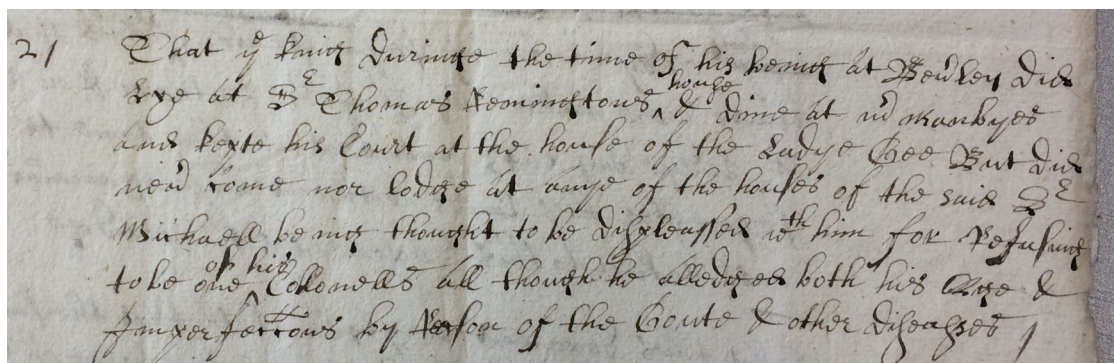 21 That ye king duringe the time of his being at Bewley did
Lye at Sr Thomas Remingtons house & dine at mr Manbyes
and kepte his Court at the house of the Ladye Gee But did
never come nor lodge at anye of the houses of the said Sr
Michaell being thought to be displeassed wth him for Refusing
to be one of his Collonells all though he alledged both his Age &
Jmperfections by Reason of the Goute & other diseasses